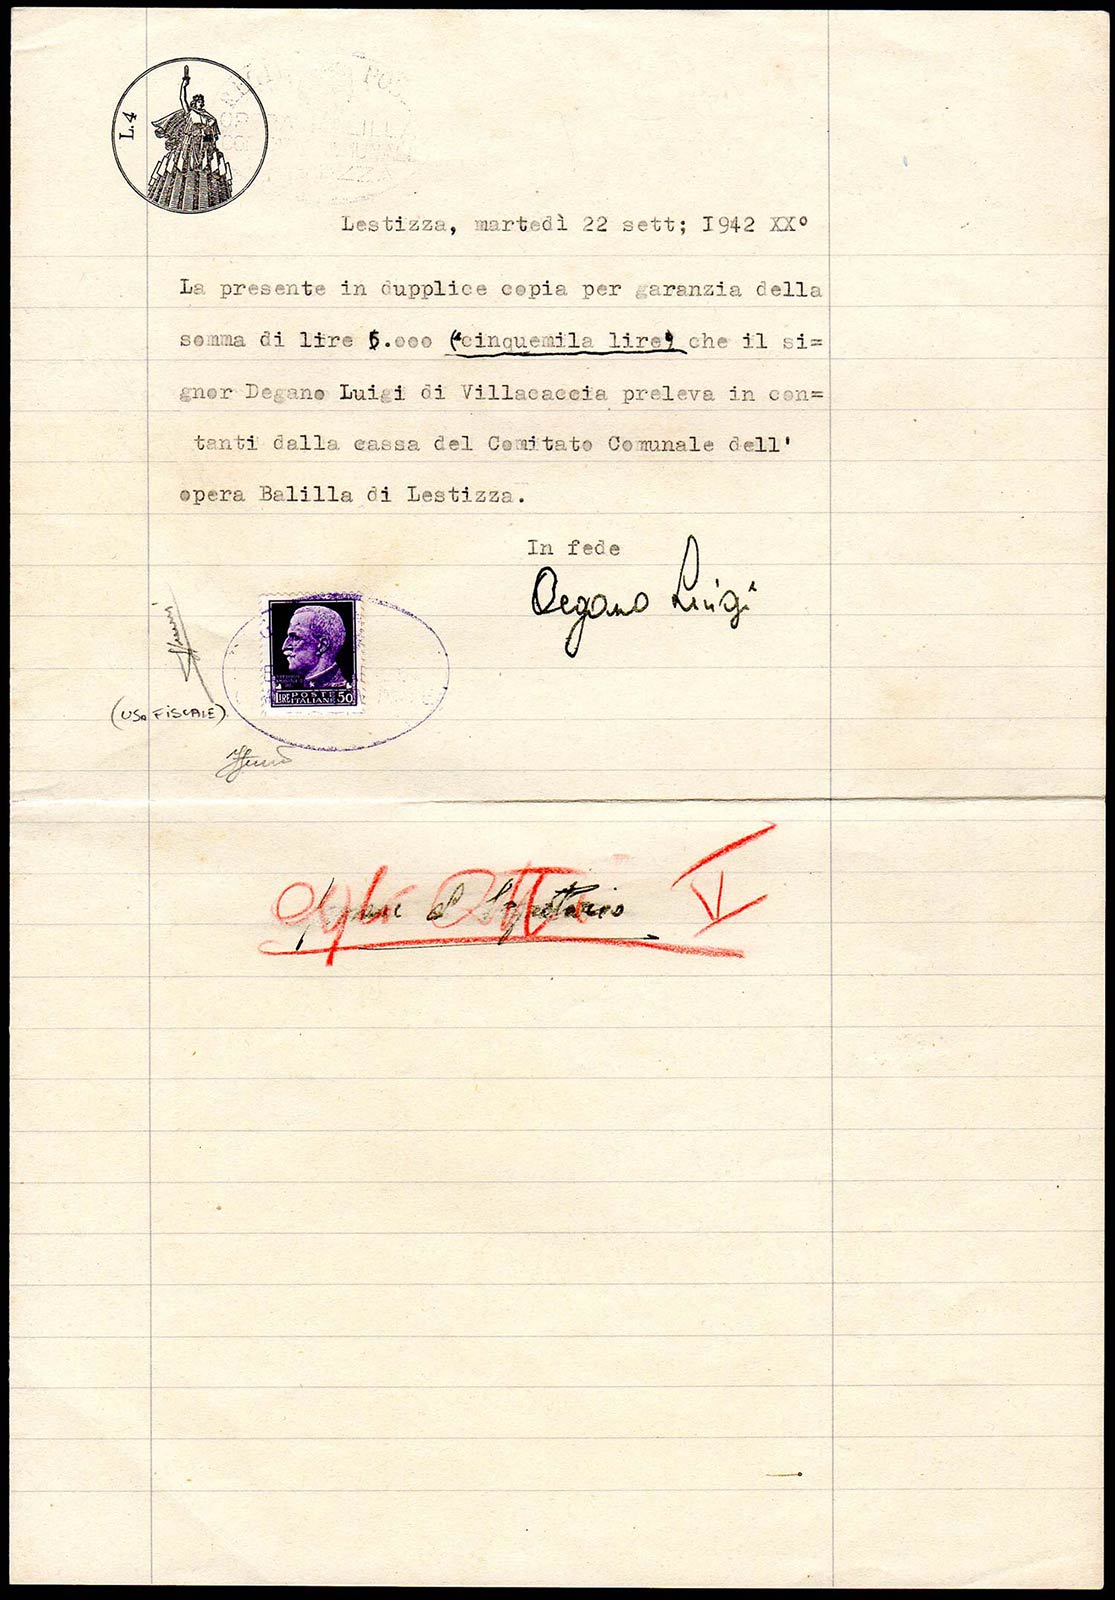 L.4
Lestizza, martedì 22 sett; I942 XX°
La presente in dupplice copia per garanzia della
somma di lire 5.000 ("cinquemila lire") che il si=
gnor Degano Luigi di Villacaccia preleva in con=
tanti dalla cassa del Comitato Comunale dell'
opera Balilla di Lestizza.
In fede
Degano Luigi
LIRE POSTE ITALIANE 50
(USO FISCALE)
il Segretario
V